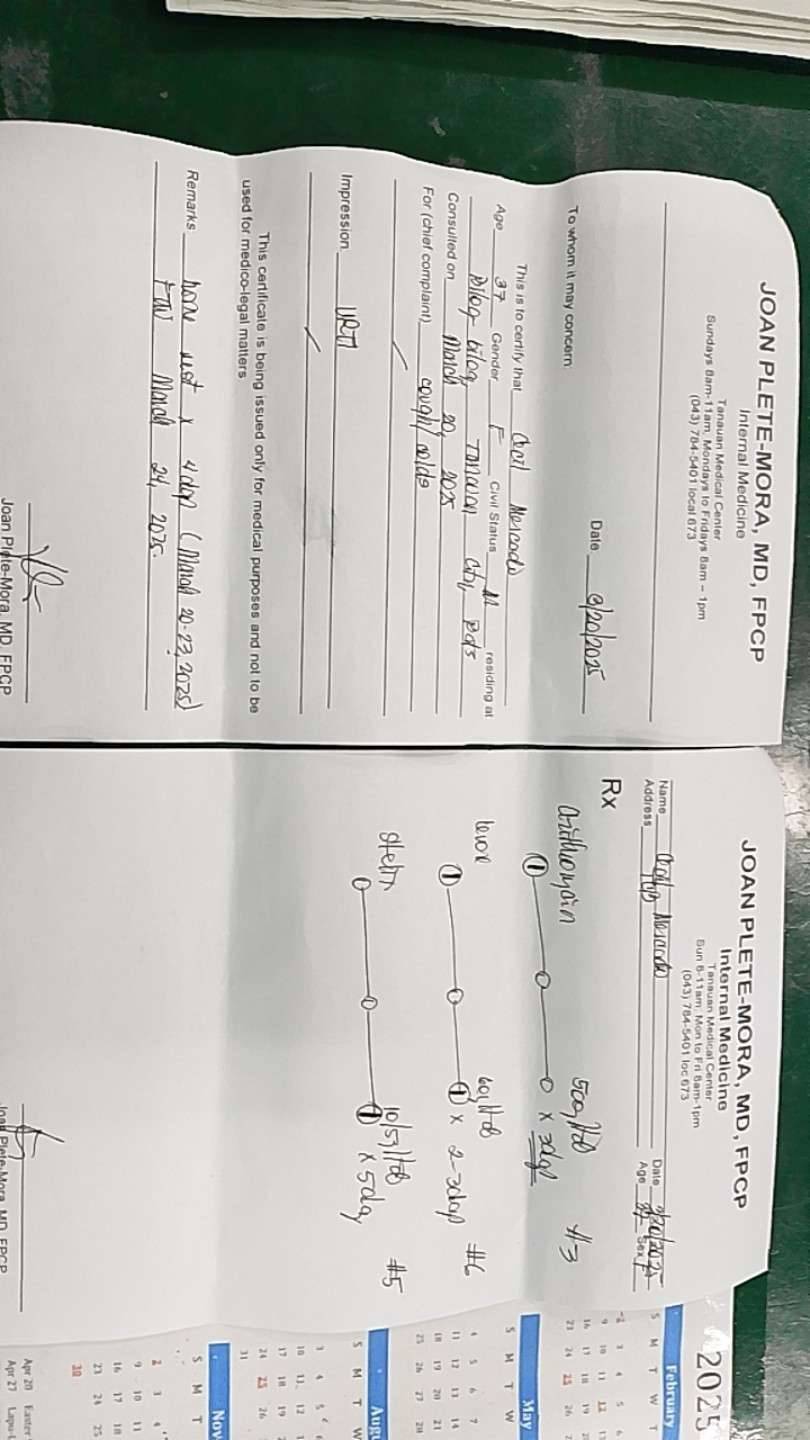 JOAN PLETE-MORA, MD, FPCP
Internal Medicine
Tanauan Medical Center
Sundays 8am-11am, Mondays to Fridays 8am – 1pm
(043) 784-5401 local 673
Date 3/20/2025
To whom it may concern:
This is to certify that Cecil Mercado
Age 37 Gender F Civil Status M residing at
Bilog-bilog, Tanauan City, Bats
Consulted on March 20, 2025
For (chief complaint) cough/colds
Impression URTI
This certificate is being issued only for medical purposes and not to be
used for medico-legal matters
Remarks home rest x 4 days (March 20-23, 2025)
March 24, 2025.
Joan Plete-Mora, MD, FPCP
JOAN PLETE-MORA, MD, FPCP
Internal Medicine
Tanauan Medical Center
Sun 8-11am, Mon to Fri 8am-1pm
(043) 784-5401 loc 673
Name Mercado Date 3/20/2025
Address Age 37 Sex F
Rx
500 #3
1 x 3days
#6
1 1 x 2-3days
10/5 #5
1 x 5days
Joan Plete-Mora, MD, FPCP
2025
February
S M T W T
2 3 4 5 6
9 10 11 12 13
16 17 18 19
23 24 25 26
May
S M T W
4 5 6 7
11 12 13 14
18 19 20 21
25 26 27 28
S M T W
3 4 5 6
10 11 12
17 18 19
24 25 26
31
Nov
S M T
2 3 4
9 10 11
16 17 18
23 24 25
30
Apr 20 Easter
Apr 27 Lapu-L